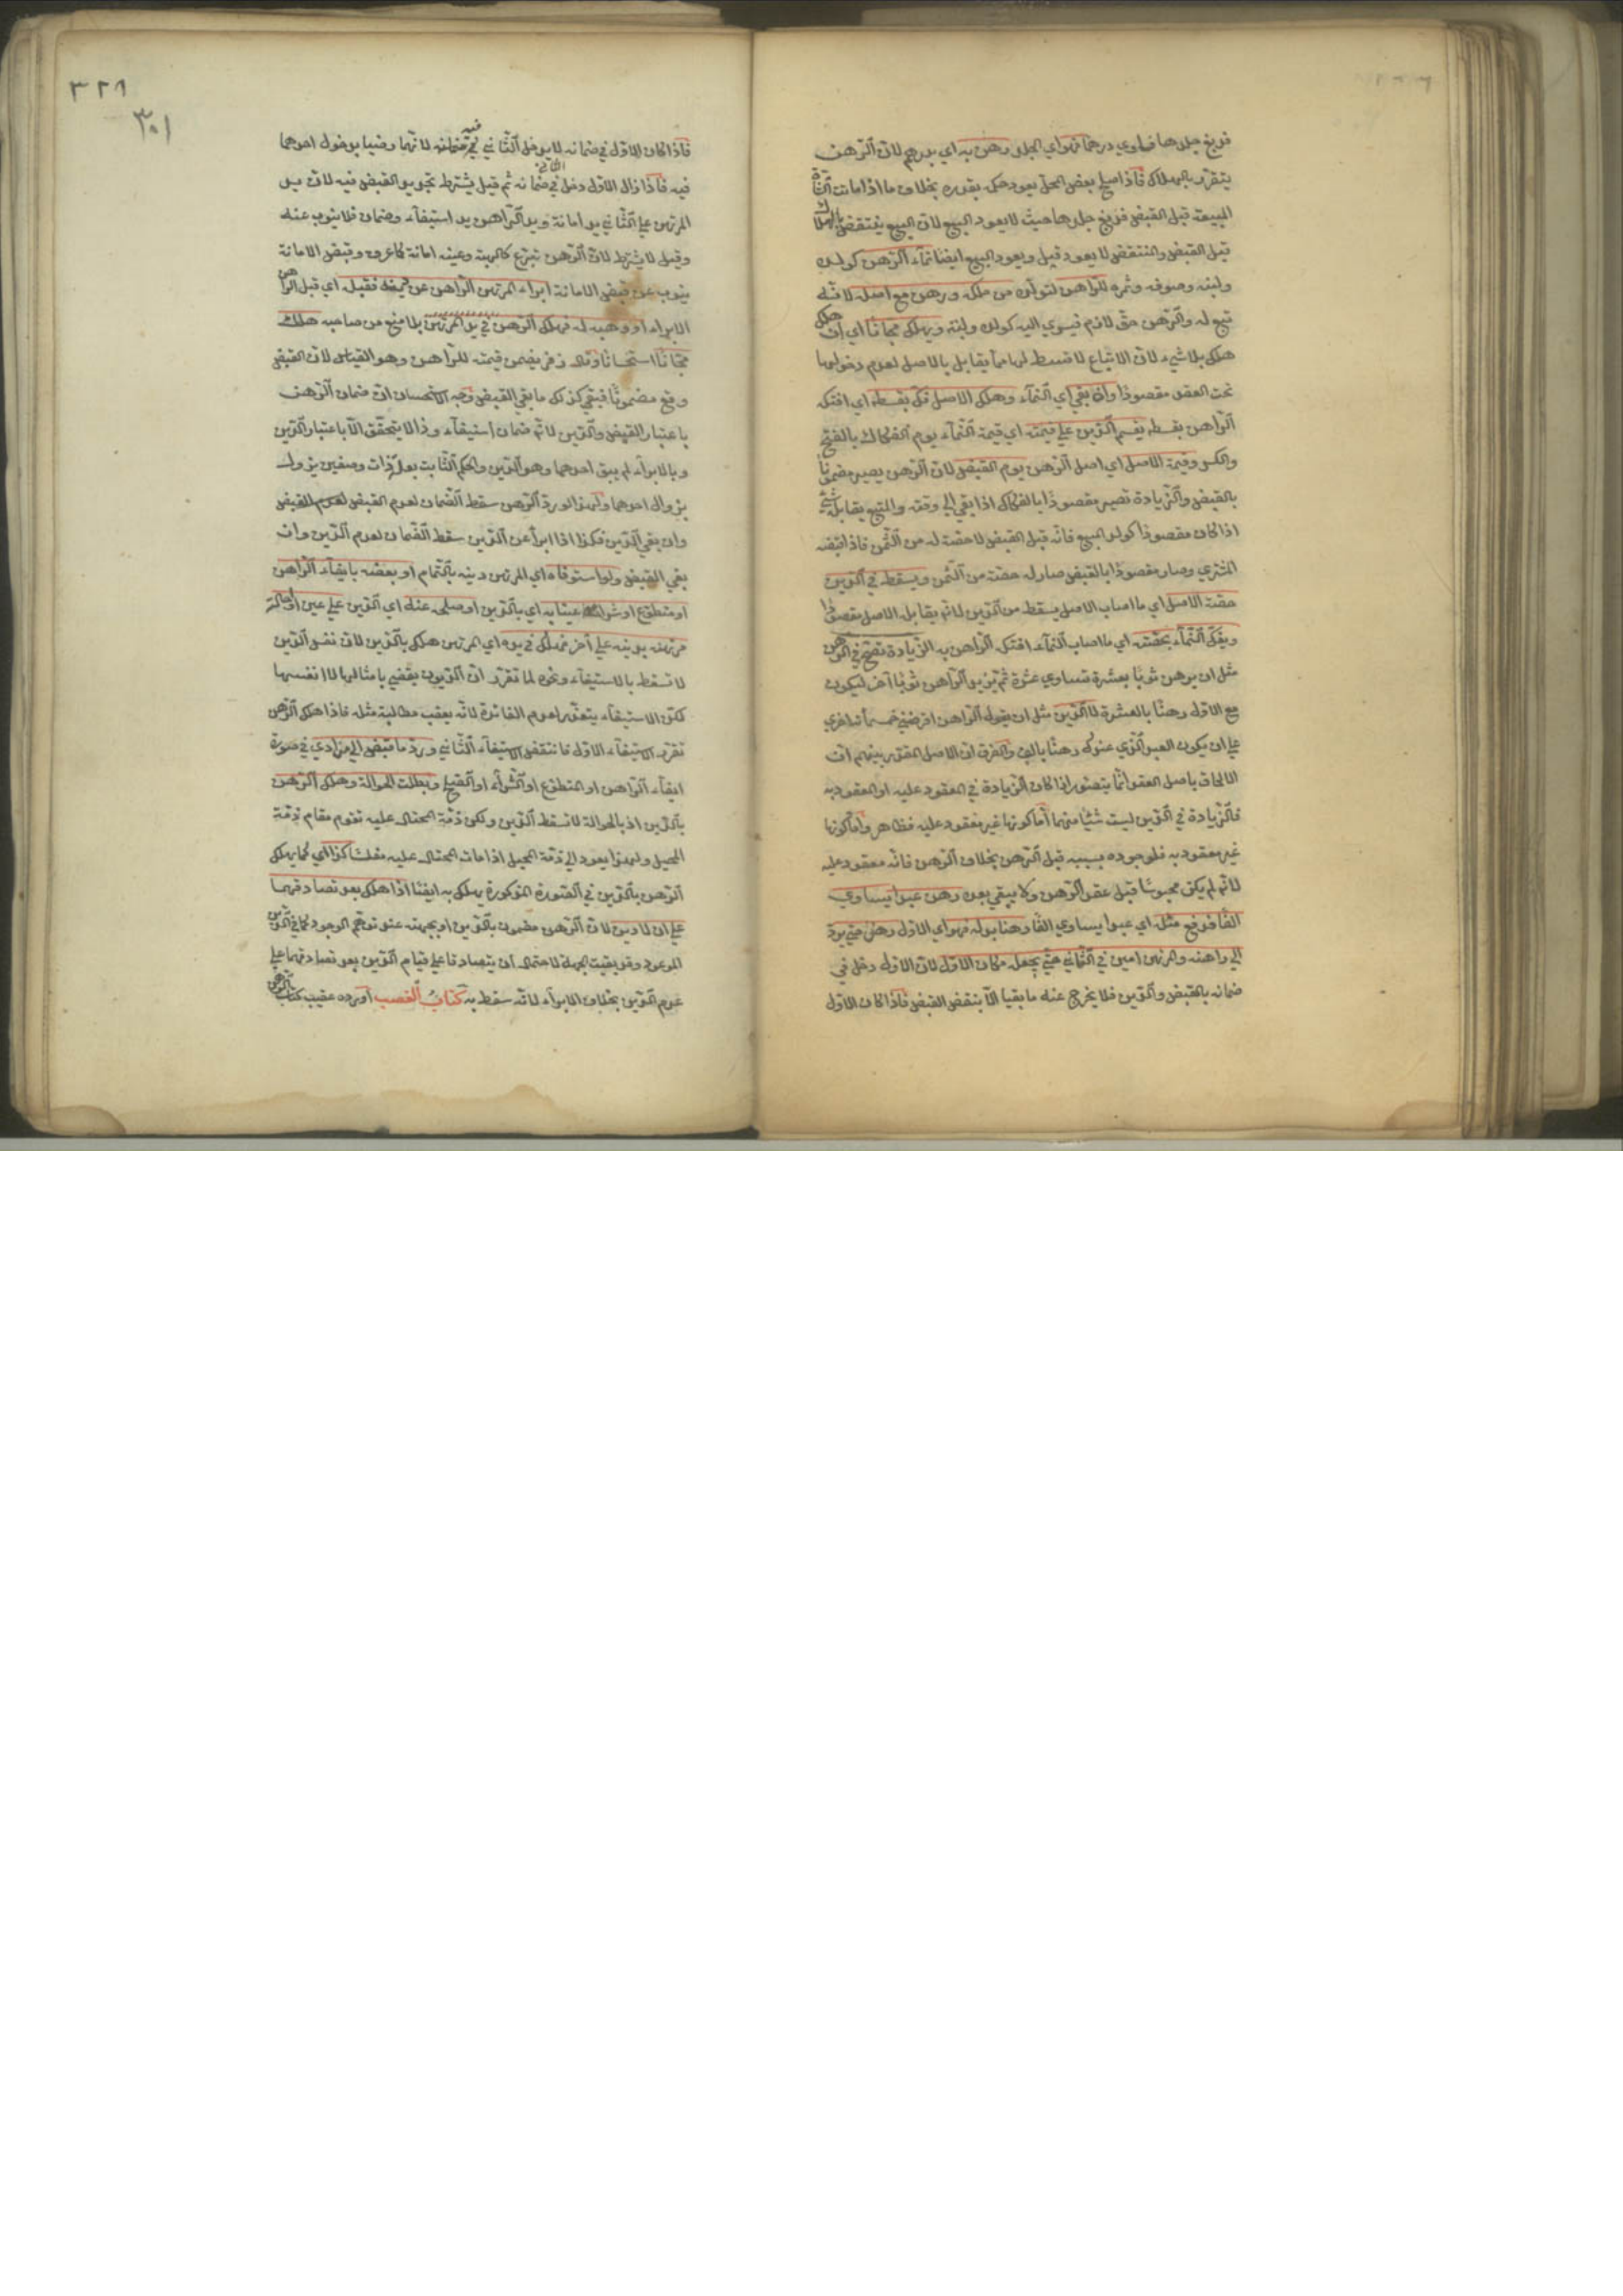 فدبغ جلدها فساوي درهما فهو اي الجلد رهن به اي بدرهم لان الرهن
يتقرر بالهلاك فاذا صلح بعض المحل يعود حكمه بقدره بخلاف ما اذا ماتت الشاة
المبيعة قبل القبض فدبغ جلدها حيث لا يعود البيع لان البيع ينتقض بالهلاك
قبل القبض والمنتقض لا يعود قيل ويعود البيع ايضا نماء الرهن كولده
ولبنه وصوفه وثمره للراهن لتولده من ملكه ورهن مع اصله لانه
تبع له والرهن حق لازم فيسري اليه كولد ولبنه ويهلك مجانا اي ان هلك
هلك بلا شيء لان الاتباع لا قسط لها مما يقابل بالاصل لعدم دخولها
تحت العقد مقصودا وان بقي اي النماء وهلك الاصل فك بقسطه اي افتكه
الراهن بقسطه يقسم الدين على قيمته اي قيمة النماء يوم الفكاك بالفتح
والكسر وقيمة الاصل اي اصل الرهن يوم القبض لان الرهن يصير مضمونا
بالقبض والزيادة تصير مقصودا بالفكاك اذا بقي الى وقته والتبع يقابله شيء
اذا كان مقصودا كولد المبيع فانه قبل القبض لا حصة له من الثمن فاذا قبضه
المشتري وصار مقصودا بالقبض صار له حصة من الثمن ويسقط في الدين
حصة الاصل اي ما اصاب الاصل يسقط من الدين لانه يقابل الاصل مقصودا
ويفك النماء بحصته اي ما اصاب النماء افتكه الراهن به الزيادة تصح في الرهن
مثل ان يرهن ثوبا بعشرة تساوي عشرة ثم يزيد الراهن ثوبا آخر ليكون
مع الاول رهنا بالعشرة لا الدين مثل ان يقول الراهن اقرضني خمسمأة اخرى
على ان يكون العبد الذي عندك رهنا بالف والفرق ان الاصل المقرر بينهم ان
الالحاق باصل العقد انما يتصور اذا كان الزيادة في المعقود عليه او المعقود به
فالزيادة في الدين ليست شيئا منهما اما كونها غير معقود عليه فظاهر واما كونها
غير معقود به فلوجوده بسببه قبل الرهن بخلاف الرهن فانه معقود عليه
لانه لم يكن محبوسا قبل عقد الرهن ولا يبقى بعده رهن عبدا يساوي
الفا فدفع مثله اي عبدا يساوي الفا رهنا بدله فهو اي الاول رهن حتى يرد
الى راهنه والمرتهن امين في الثاني حتى يجعل مكان الاول لان الاول دخل في
ضمانه بالقبض والدين فلا يخرج عنه ما بقيا الا بنقض القبض فاذا كان الاول
٣٢٩
٣٠١
فاذا كان الاول في ضمانه لا يدخل الثاني في ضمانه لانهما رضيا بدخول احدهما
فيه فاذا زال الاول دخل الثاني في ضمانه ثم قيل يشترط تجديد القبض فيه لان يد
المرتهن على الثاني يد امانة ويد الراهن يد استيفاء وضمان فلا ينوب عنه
وقيل لا يشترط لان الرهن تبرع كالهبة وعينه امانة كما عرف وقبض الامانة
ينوب عن قبض الامانة ابراء المرتهن الراهن عن دينه فقبل اي قبل الراهن
الابراء او وهبه له فهلك الرهن في يد المرتهن بلا منع من صاحبه هلك
مجانا استحسانا وقال زفر يضمن قيمته للراهن وهو القياس لان القبض
وقع مضمونا فيبقى كذلك ما بقي القبض وجه الاستحسان ان ضمان الرهن
باعتبار القبض والدين لانه ضمان استيفاء وذا لا يتحقق الا باعتبار الدين
وبالابراء لم يبق احدهما وهو الدين والحكم الثابت بعلة ذات وصفين يزول
بزوال احدهما ولهذا لو رد الرهن سقط الضمان لعدم القبض
وان بقي الدين فكذا اذا ابرأ عن الدين سقط الضمان لعدم الدين وان
بقي القبض ولو استوفاه اي المرتهن دينه بالتمام او بعضه بايفاء الراهن
او متطوع او شرائه عينا به اي بالدين او صلحه عنه اي الدين على عين او احالة
مرتهنه بدينه على آخر فهلك في يده اي المرتهن هلك بالدين لان نفس الدين
لا تسقط بالاستيفاء ونحوه لما تقرر ان الديون تقضى بامثالها لا انفسها
لكن الاستيفاء يتعذر لعدم الفائدة لانه يعقب مطالبة مثله فاذا هلك الرهن
تقرر الاستيفاء الاول فانتقض الاستيفاء الثاني ورد ما قبض الى من ادى في صورة
ايفاء الراهن او المتطوع او الشراء او الصلح وبطلت الحوالة وهلك الرهن
بالدين اذ بالحوالة لا تسقط الدين ولكن ذمة المحتال عليه تقوم مقام ذمة
المحيل ولهذا يعود الى ذمة المحيل اذا مات المحتال عليه مفلسا كذا اي كما يهلك
الرهن بالدين في الصورة المذكورة يهلك به ايضا اذا هلك بعد تصادقهما
على ان لا دين لان الرهن مضمون بالدين او بجهته عند توهم الوجود كما في الدين
الموعود وقد بقيت الجهة لاحتمال ان يتصادقا على قيام الدين بعد تصادقهما على
عدم الدين بخلاف الابراء لانه سقط به كتاب الغصب اورده عقيب كتاب الرهن